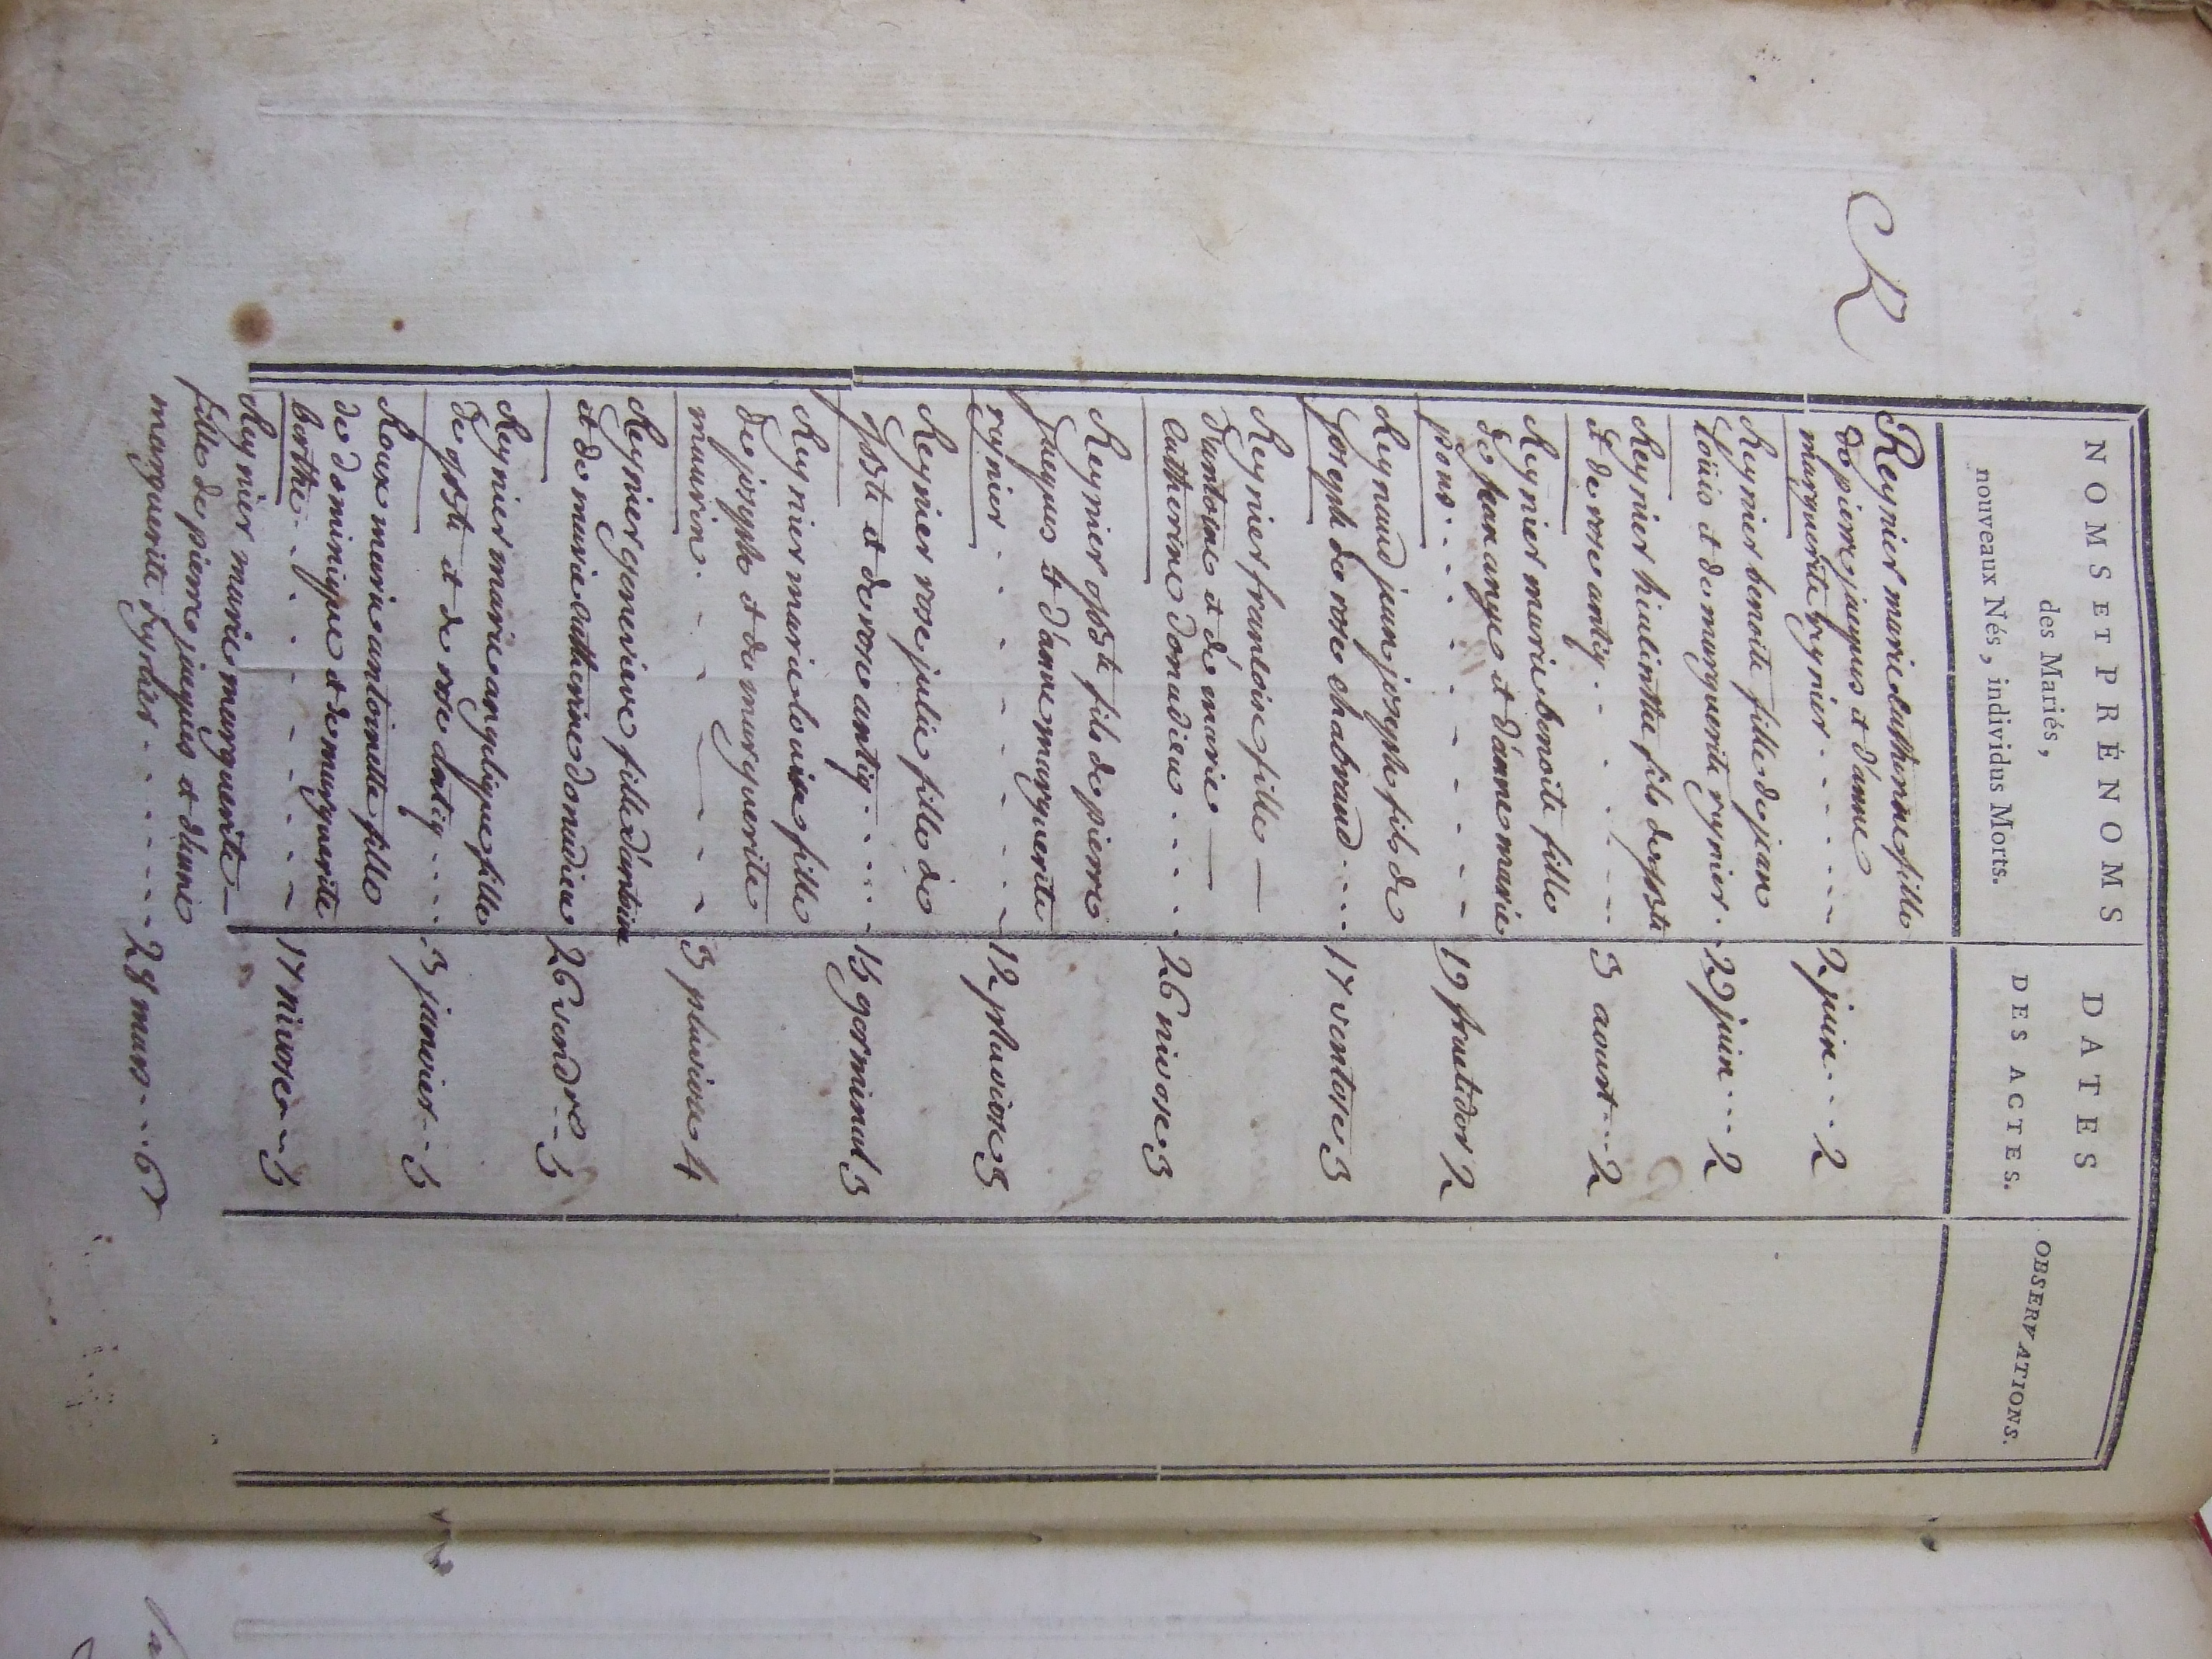 R
NOMS ET PRÉNOMS
des Mariés,
nouveaux Nés, individus Morts.
DATES
DES ACTES.
OBSERVATIONS.
Reynier marie catherine fille
de pierre jaques et d'anne
marguerite reynier . . . . . . 9 juin . . . 2
Reynier benoite fille de jean
Loüis et de marguerite reynier . 29 juin . . . 2
Reynier hiacinthe fils de jpste
et de rose antiq . . . . . . 3 aoust . . . 2
Reynier marie benoite fille
de jean ange et d'anne marie
pons . . . . . . . 19 fructidor 2
Reynaud jean joseph fils de
joseph de rose chabraud . . . . 17 ventose 3
Reynier francoise fille
d'antoine et de marie
catherine donadieu . . . . 26 nivose 3
Reynier jpste fils de pierre
jaques et d'anne marguerite
reynier . . . . . . . 12 pluviose 3
Reynier rose julie fille de
jpste et de rose antiq . . . . . 15 germinal 3
Reynier marie louise fille
de joseph et de marguerite
maurin . . . . . . 3 pluviose 4
Reynier genevieve fille d'antoine
et de marie catherine donadieu 26 vendre . . 5
Reynier marie angelique fille
de jpste et de rose dantiq . . . . 3 janvier . . 5
Roux marie antoinette fille
de dominique et de marguerite
barthe . . . . . . . 17 nivose . . 5
Reynier marie marguerite
fille de pierre jaques et d'anne
marguerite . . . . . . 28 mars . . . 6